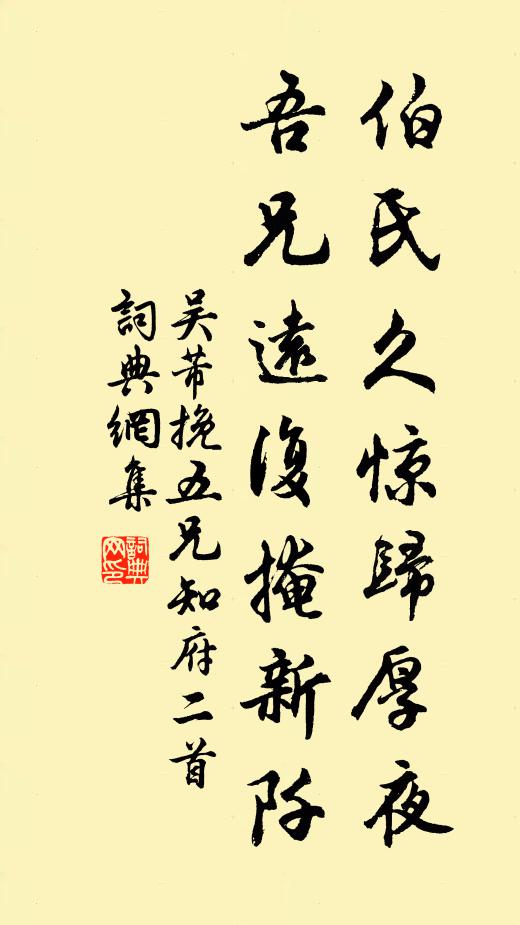 伯氏久惊歸厚夜
吾兄遠復掩新阡
吴芾挽五兄知府二首
詞典網集
詞典網印